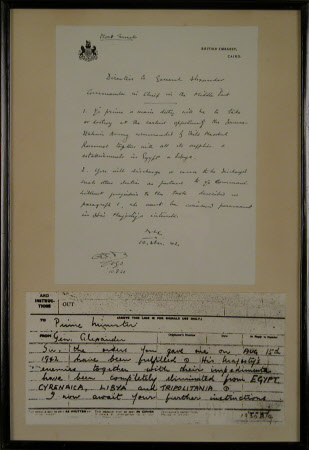 Most Secret
BRITISH EMBASSY,
CAIRO.
Directive to General Alexander
Commander in Chief in the Middle East
1. Yr prime & main duty will be to take
or destroy at the earliest opportunity the German-
Italian Army commanded by Field Marshal
Rommel together with all its supplies &
establishments in Egypt & Libya.
2. You will discharge or cause to be discharged
such other duties as pertain to yr Command
without prejudice to the task described in
paragraph 1, wh must be considered paramount
in His Majesty's interests.
AND
INSTRUC-
TIONS
OUT
(ABOVE THIS LINE IS FOR SIGNALS USE ONLY)
TO Prime Minister
FROM Gen. Alexander
Sir. The orders you gave me on Aug 15th
1942 have been fulfilled. His Majesty's
enemies together with their impedimenta
have been completely eliminated from EGYPT,
CYRENAICA, LIBYA and TRIPOLITANIA.
I now await your further instructions